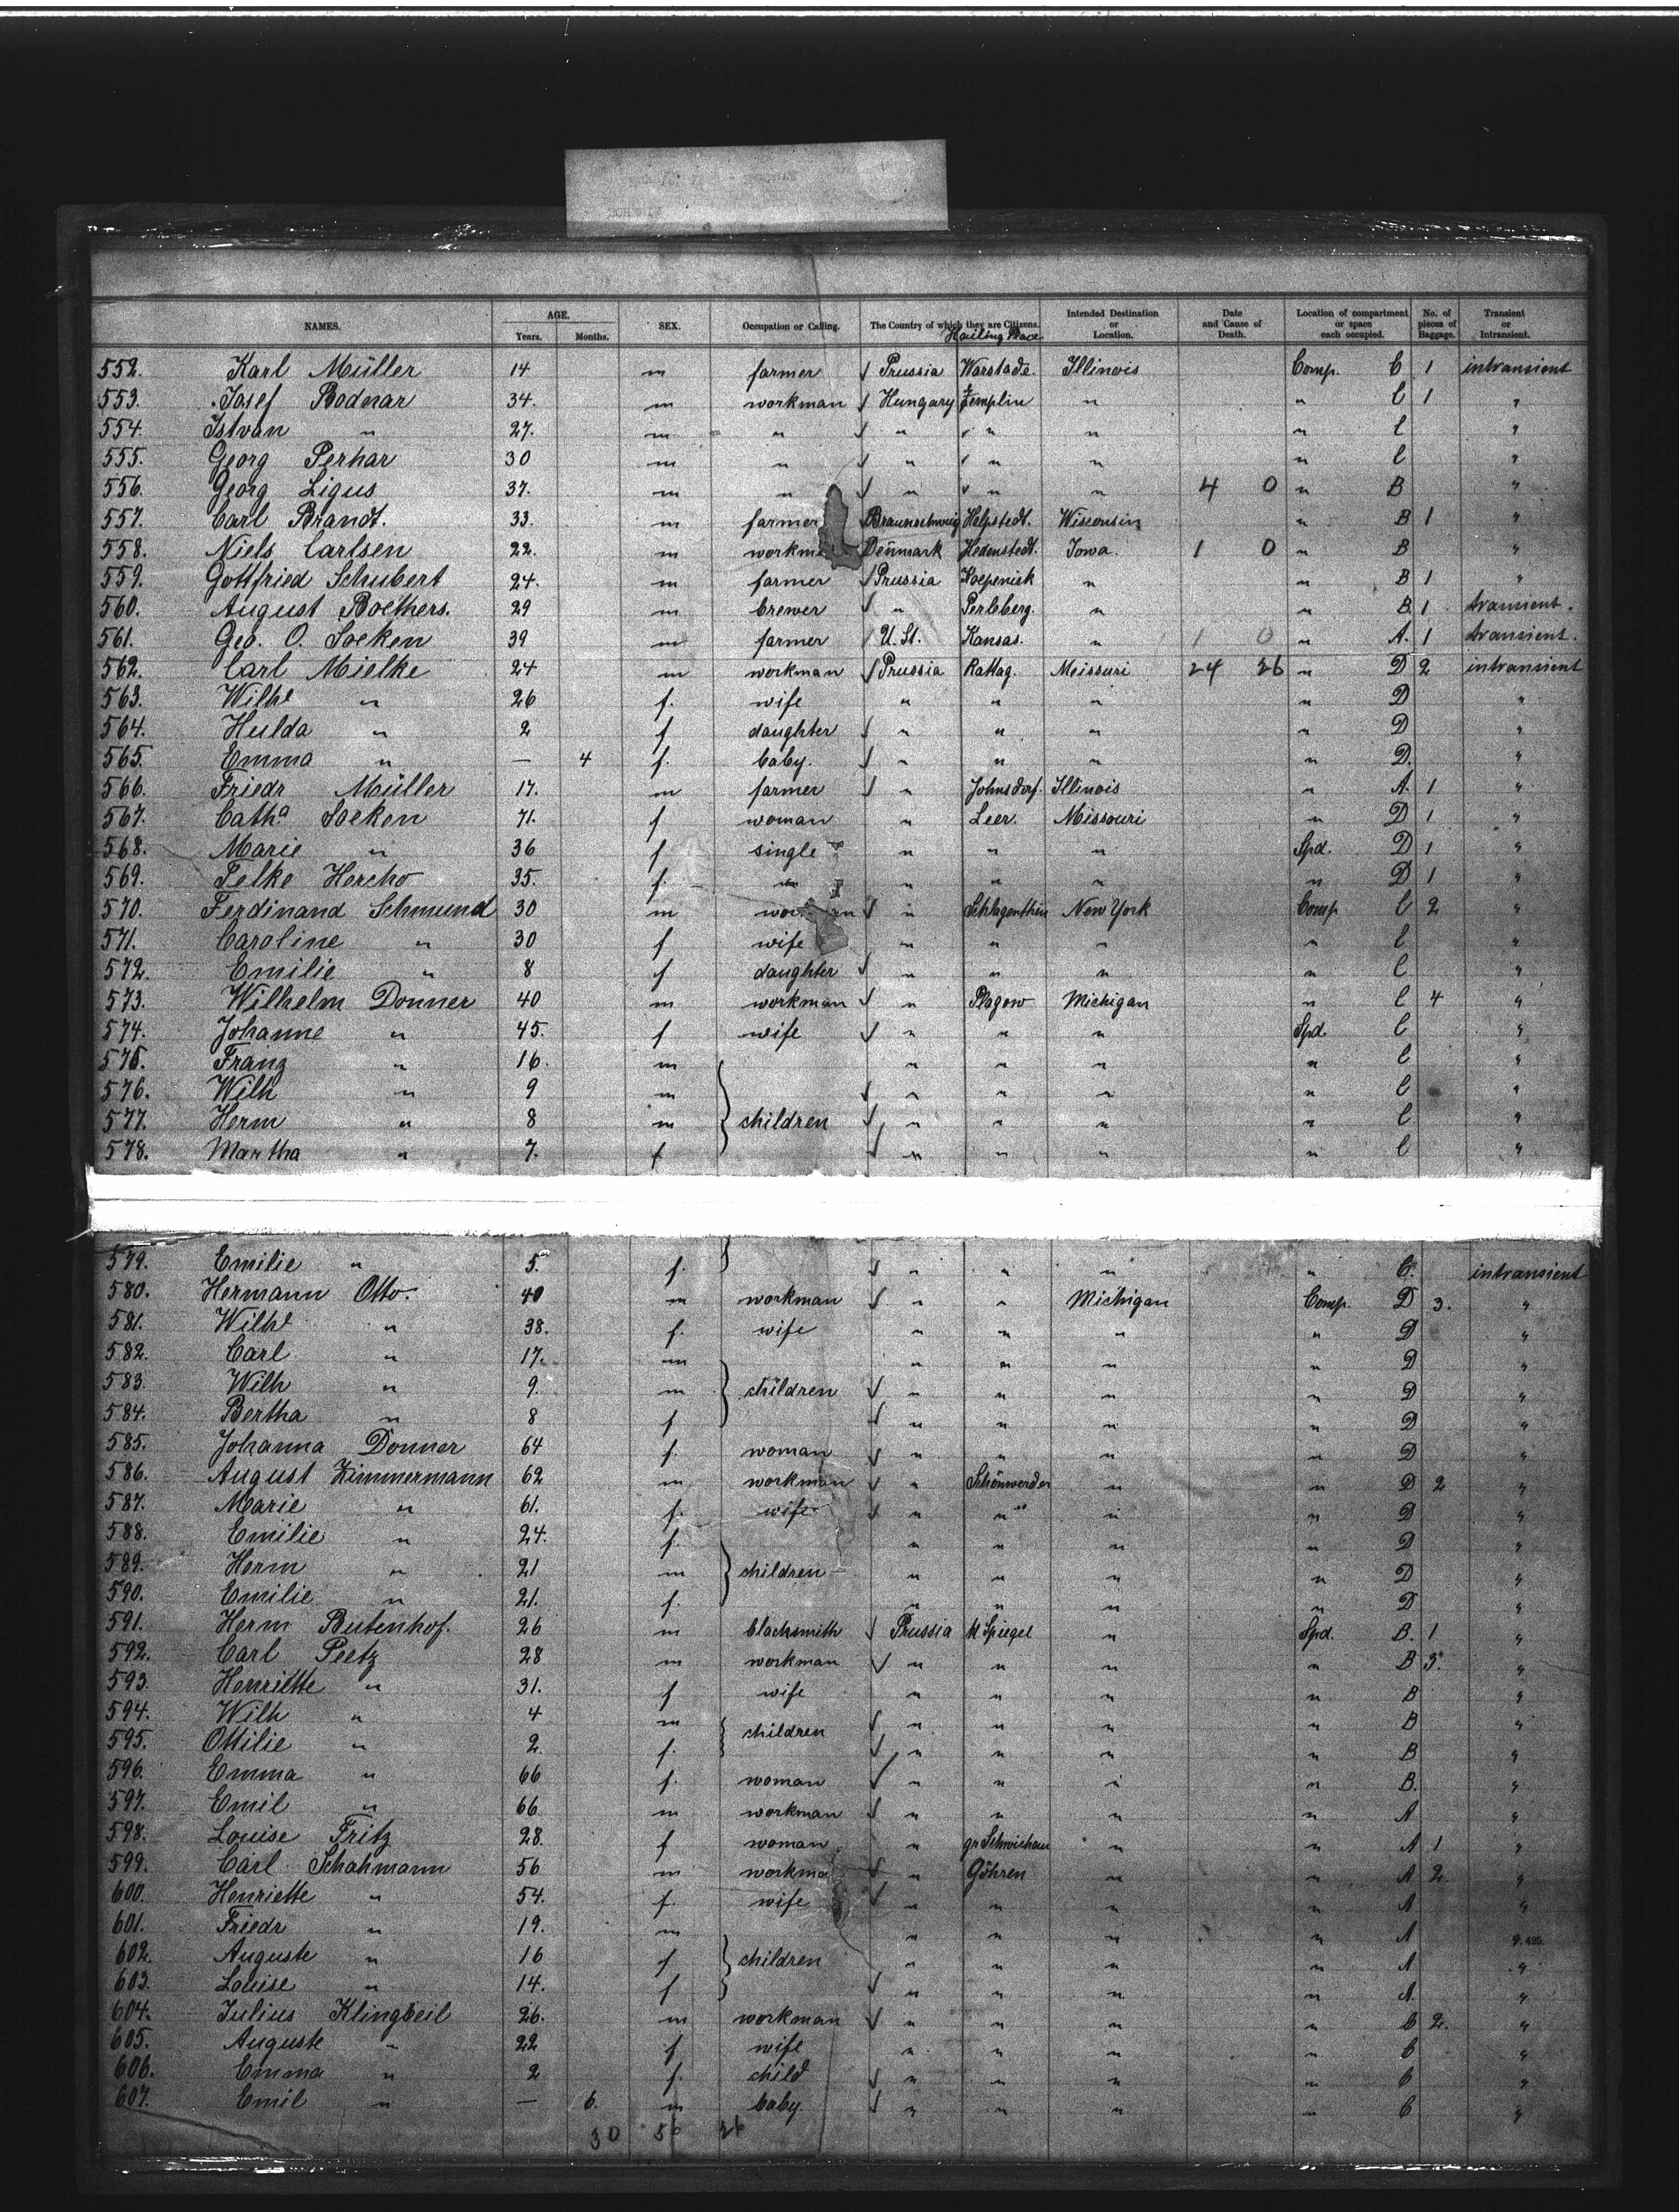 NAMES. AGE. Years. Months. SEX. Occupation or Calling. The Country of which they are Citizens. Hailing Place Intended Destination or Location. Date and Cause of Death. Location of compartment or space each occupied. No. of pieces of Baggage. Transient or Intransient.
552. Karl Müller 14 m farmer Prussia Warstade. Illinois Comp. C 1 intransient
553. Josef Bodnar 34. m workman Hungary Zemplin " " C 1 "
554. Istvan " 27. m " " " " " C "
555. Georg Perhar 30 m " " " " " C "
556. Georg Ligus 37. m " " " " 4 0 " B "
557. Carl Brandt. 33. m farmer Braunschweig Helpstedt. Wisconsin " B 1 "
558. Niels Carlsen 22. m workma Denmark Hedenstedt. Iowa. 1 0 " B "
559. Gottfried Schubert 24. m farmer Prussia Koepenick " " B 1 "
560. August Boethers. 29 m brewer " Perleberg. " " B. 1 transient.
561. Geo. O. Soeken 39 m farmer U. St. Kansas. " 1 0 " A. 1 transient.
562. Carl Mielke 24 m workman Prussia Rattag. Meissuri 24 26 " D 2 intransient
563. Wilhe " 26 f. wife " " " " D "
564. Hulda " 2 f daughter " " " " D "
565. Emma " — 4 f. baby. " " " " D. "
566. Friedr Müller 17. m farmer " Johnsdorf. Illinois " A. 1 "
567. Catha Soeken 71. f woman " Leer. Missouri " D 1 "
568. Marie " 36 f single " " " Spd. D 1 "
569. Felke Hercho 35. f. " " " " " D 1 "
570. Ferdinand Schmund 30 m workman " Schlagenthin New York Comp C 2 "
571. Caroline " 30 f wife " " " " C "
572. Emilie " 8 f daughter " " " " C "
573. Wilhelm Donner 40 m workman " Plagow Michigan " C 4 "
574. Johanne " 45. f wife " " " Spd. C "
575. Franz " 16. m " " " " C "
576. Wilh " 9 m " " " " C "
577. Herm " 8 m children " " " " C "
578. Martha " 7. f " " " " C "
579. Emilie " 5. f. " " " " C. intransient
580. Hermann Otto. 40 m workman " " Michigan Comp. D 3. "
581. Wilhe " 38. f. wife " " " " D "
582. Carl " 17. m " " " " D "
583. Wilh " 9. m children " " " " D "
584. Bertha " 8 f " " " " D "
585. Johanna Donner 64 f. woman " " " " D "
586. August Zimmermann 62 m workman " Schönwerder " " D 2 "
587. Marie " 61. f. wife " " " " D "
588. Emilie " 24. f. " " " " D "
589. Herm " 21 m children " " " " D "
590. Emilie " 21. f. " " " " D "
591. Herm Butenhof. 26 m blacksmith Prussia Kl Spiegel " Spd. B. 1 "
592. Carl Peetz 28 m workman " " " " B 3. "
593. Henriette " 31. f wife " " " " B "
594. Wilh " 4 m children " " " " B "
595. Ottilie " 2 f. " " " " B "
596. Emma " 66 f. woman " " " " B. "
597. Emil " 66 m workman " " " " A "
598. Louise Fritz 28. f woman " gr " " A 1 "
599. Carl Schahmann 56 m workma " Göhren " " A 2. "
600. Henriette " 54. f. wife " " " " A "
601. Friedr " 19. m " " " " A "
602. Auguste " 16 f children " " " " A "
603. Louise " 14. f " " " " A. "
604. Julius Klingbeil 26. m workman " " " " C 2. "
605. Auguste " 22 f wife " " " " C "
606. Emma " 2 f. child " " " " C "
607. Emil " — 6. m baby. " " " " C "
30 56 26